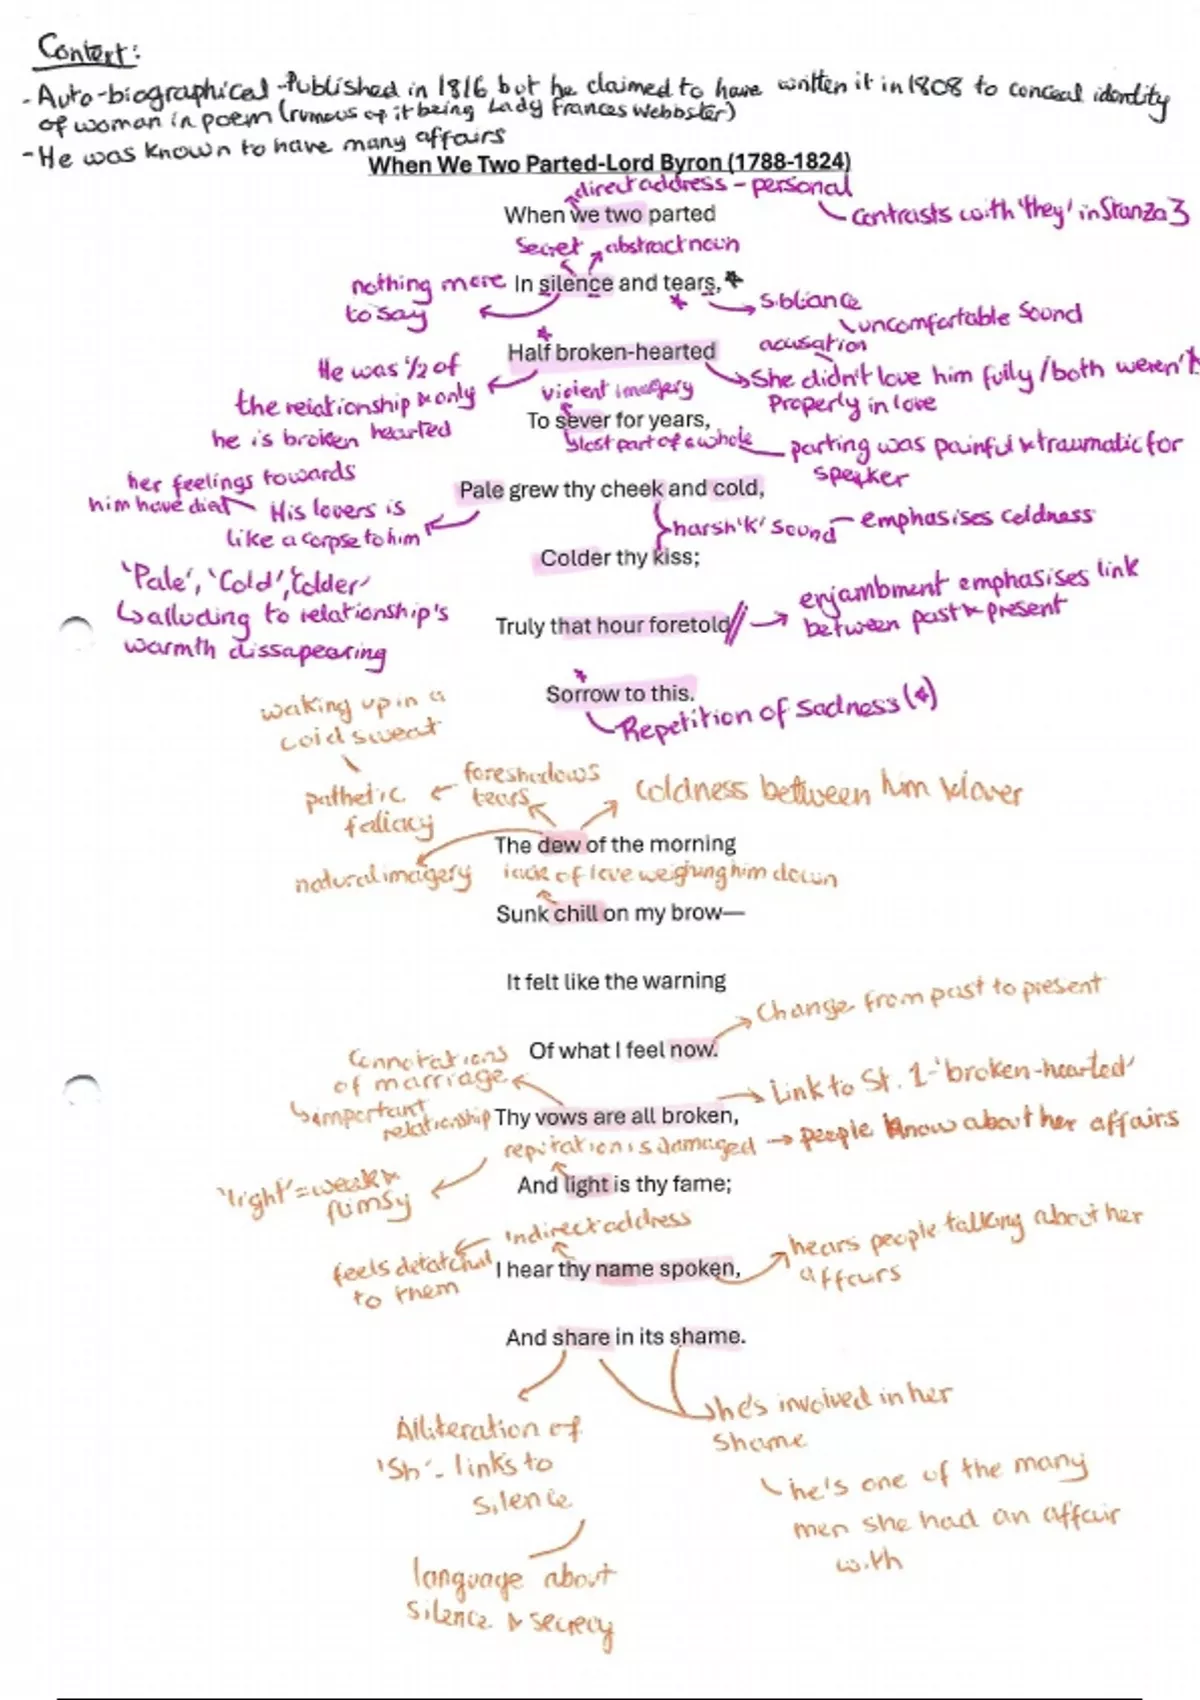 Context:
- Auto-biographical - Published in 1816 but he claimed to have written it in 1808 to conceal identity
of woman in poem (rumous of it being Lady Frances Webbster)
- He was known to have many affairs
When We Two Parted-Lord Byron (1788-1824)
direct address - personal
When we two parted
contrasts with 'they' in Stanza 3
secret abstract noun
nothing more
In silence and tears,*
to say
sibliance
uncomfortable sound
Half broken-hearted
acusation
He was 1/2 of
She didn't love him fully / both weren't
the relationship & only
violent imagery
properly in love
he is broken hearted
To sever for years,
lost part of a whole
parting was painful & traumatic for
speaker
her feelings towards
him have died
Pale grew thy cheek and cold,
His lovers is
like a corpse to him
harsh 'k' sound
emphasises coldness
Colder thy kiss;
'Pale', 'Cold', 'Colder'
alluding to relationship's
warmth dissapearing
enjambment emphasises link
between past & present
Truly that hour foretold//
Sorrow to this.
Repetition of sadness (*)
waking up in a
cold sweat
foreshadows
tears
pathetic
fallacy
coldness between him & lover
The dew of the morning
natural imagery
lack of love weighing him down
Sunk chill on my brow—
It felt like the warning
Change from past to present
Of what I feel now.
Connotations
of marriage
important
relationship
Link to St. 1 - 'broken-hearted'
Thy vows are all broken,
reputation is damaged → people know about her affairs
And light is thy fame;
'light' = weak &
flimsy
indirect address
feels detatched
to them
I hear thy name spoken,
hears people talking about her
affairs
And share in its shame.
Alliteration of
'Sh' - links to
silence
language about
silence & secrecy
he's involved in her
shame
he's one of the many
men she had an affair
with